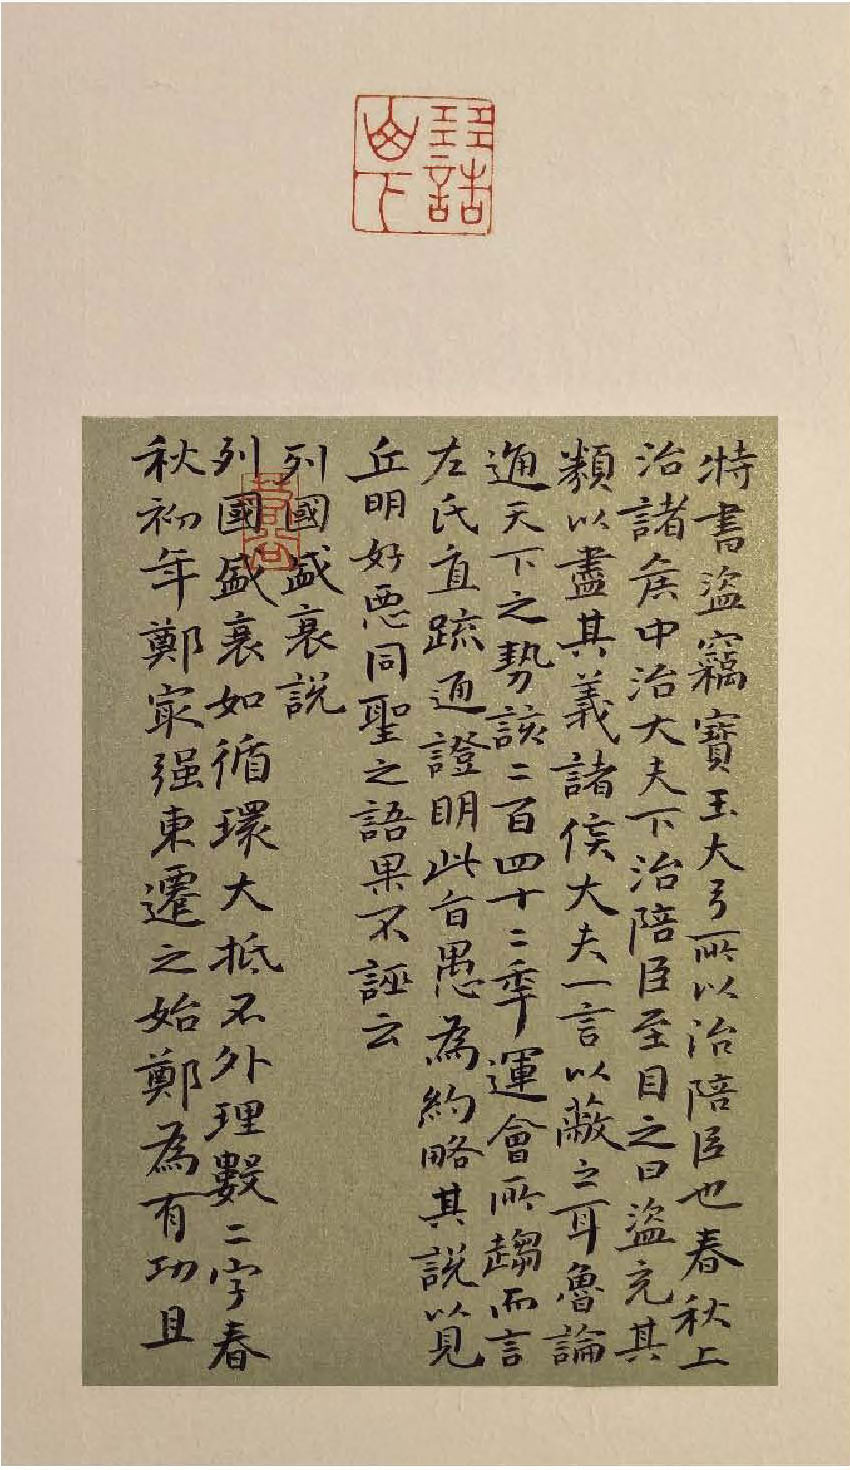 特書盜竊寶玉大弓所以治陪臣也春秋上
治諸侯中治大夫下治陪臣至目之曰盜充其
類以盡其義諸侯大夫一言以蔽之耳魯論
通天下之勢該二百四十二年運會所趨而言
左氏直疏通證明此旨愚為約略其說以見
丘明好惡同聖之語果不誣云
列國盛衰說
列國盛衰如循環大抵不外理數二字春
秋初年鄭最强東遷之始鄭為有功且